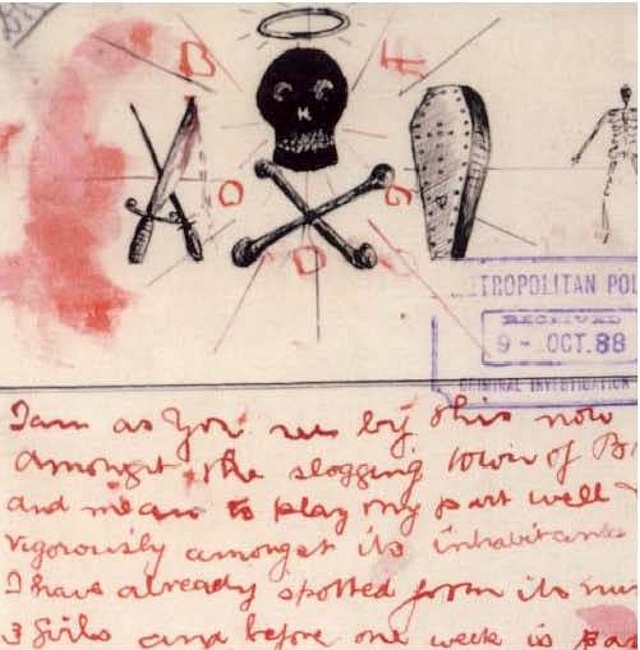 METROPOLITAN POL
RECEIVED
9 - OCT. 88
CRIMINAL INVESTIGATION
I am as you see by this now
amongst the slogging town of B
and mean to play my part well
vigorously amongst its inhabitants
I have already spotted from its
3 girls and before one week is pas